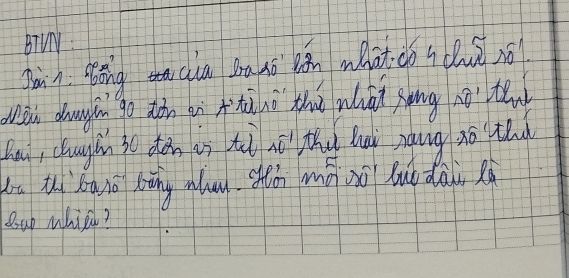 BTVN:
Bài 1: Tổng của ba số lớn nhất có 4 chữ số.
Nếu chuyển 90 đơn vị từ số thứ nhất sang số thứ
hai, chuyển 30 đơn vị từ số thứ hai sang số thứ
ba thì ba số bằng nhau. Hỏi mỗi số lúc đầu là
bao nhiêu?